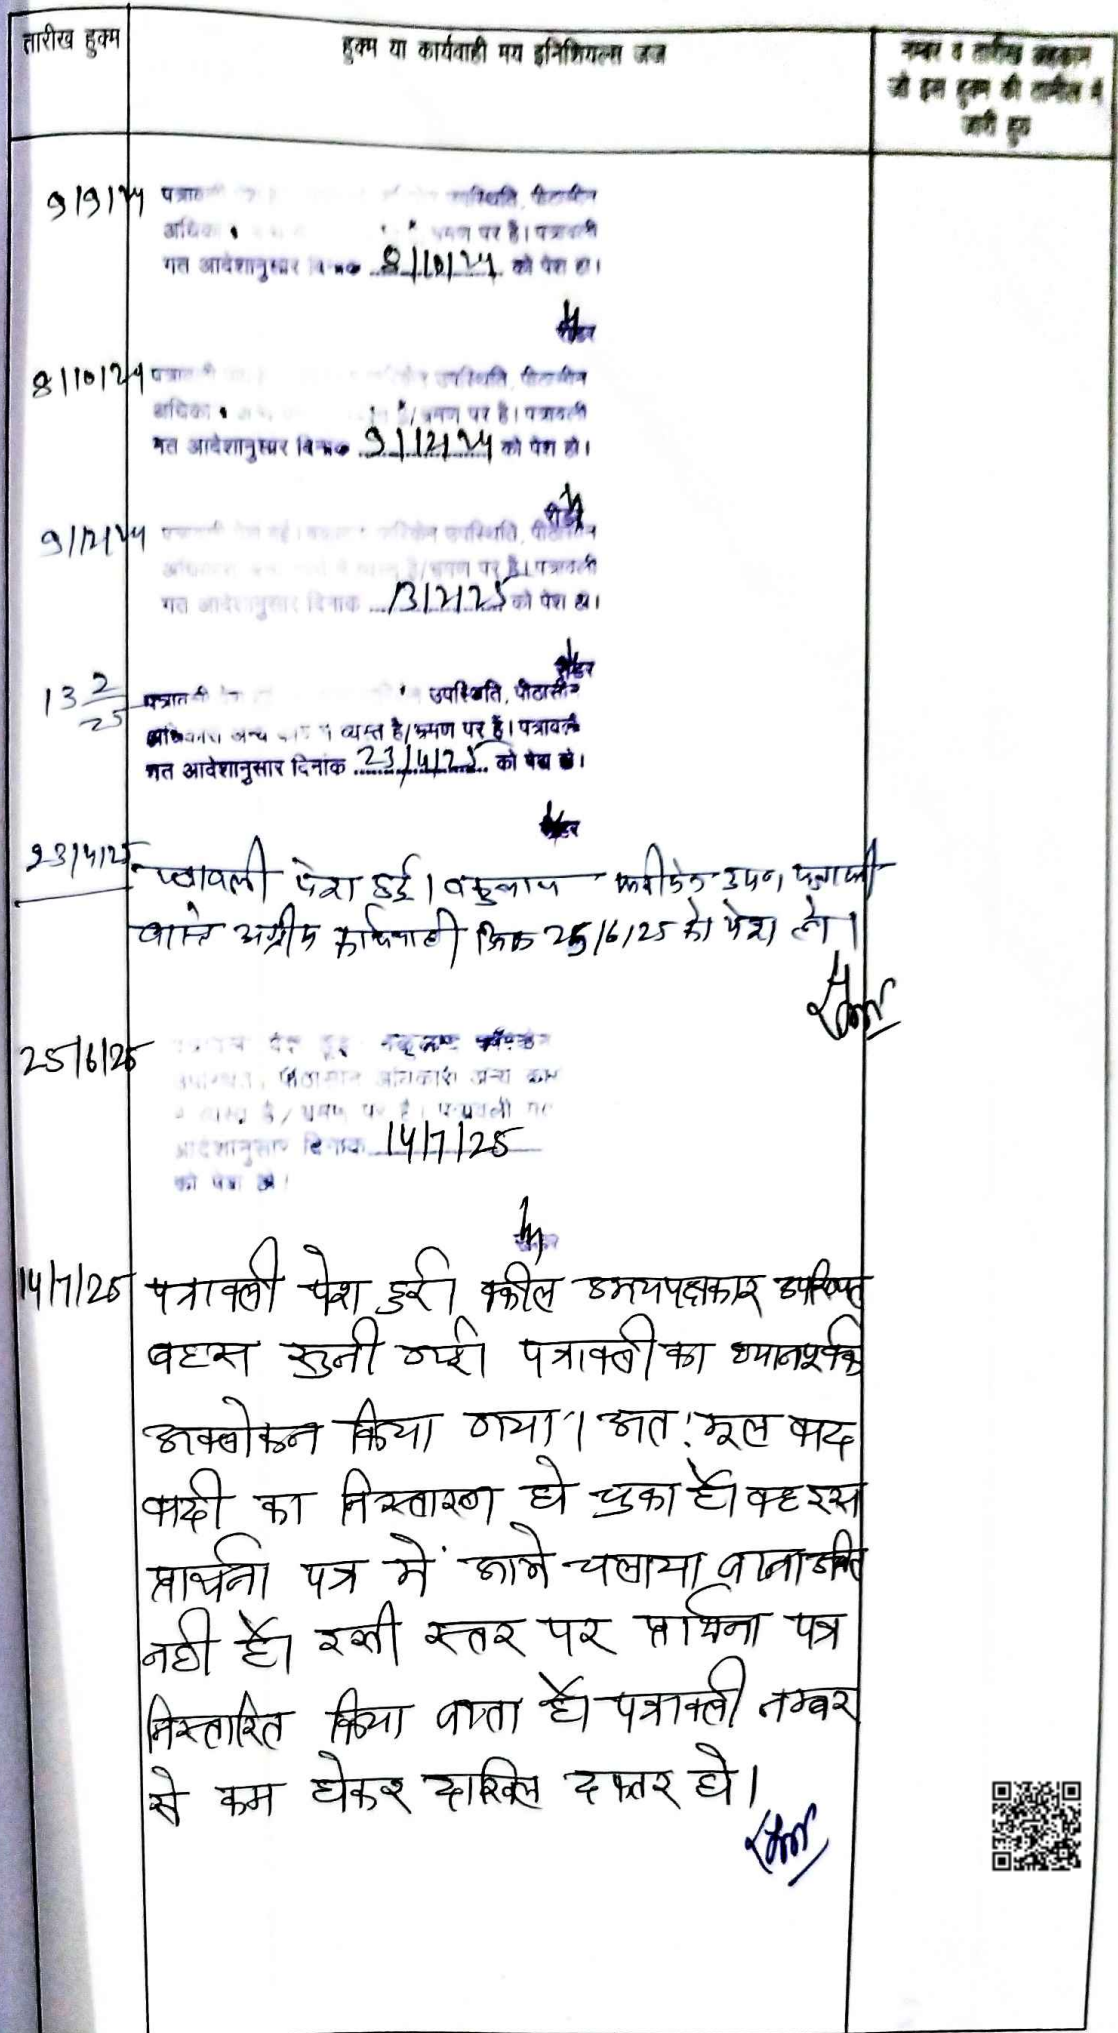 तारीख हुक्म
हुक्म या कार्यवाही मय इनिशियल्स जज
नम्बर व तारीख अहकाम
जो इस हुक्म की तामील में
जारी हुए
9/9/24
उपस्थिति, पीठासीन
भ्रमण पर है। पत्रावली
गत आदेशानुसार 8/10/24 को पेश हो।
रीडर
8/10/24
उपस्थिति, पीठासीन
/भ्रमण पर है। पत्रावली
गत आदेशानुसार 9/12/24 को पेश हो।
रीडर
9/12/24
उपस्थिति, पीठासीन
है/भ्रमण पर है। पत्रावली
गत आदेशानुसार दिनांक 13/2/25 को पेश हो।
रीडर
13 2/25
उपस्थिति, पीठासीन
अन्य व्यस्त है/भ्रमण पर है। पत्रावली
गत आदेशानुसार दिनांक 23/4/25 को पेश हो।
रीडर
23/4/25
पत्रावली पेश हुई।
वास्ते 25/6/25 को पेश हो।
25/6/25
पेश हुई
उपस्थित। पीठासीन अधिकारी अन्य कार्य
में व्यस्त है/भ्रमण पर है। पत्रावली गत
आदेशानुसार दिनांक 14/7/25
को पेश हो।
14/7/25
पत्रावली पेश हुई। वकील उभयपक्षकार उपस्थित
बहस सुनी गयी। पत्रावली का ध्यानपूर्वक
अवलोकन किया गया। अत: मूल वाद
वादी का निस्तारण हो चुका है। वह इस
प्रार्थना पत्र में आगे चलाया जाना उचित
नही है। इसी स्तर पर प्रार्थना पत्र
निस्तारित किया जाता है। पत्रावली नम्बर
से कम होकर दाखिल दफ्तर हो।